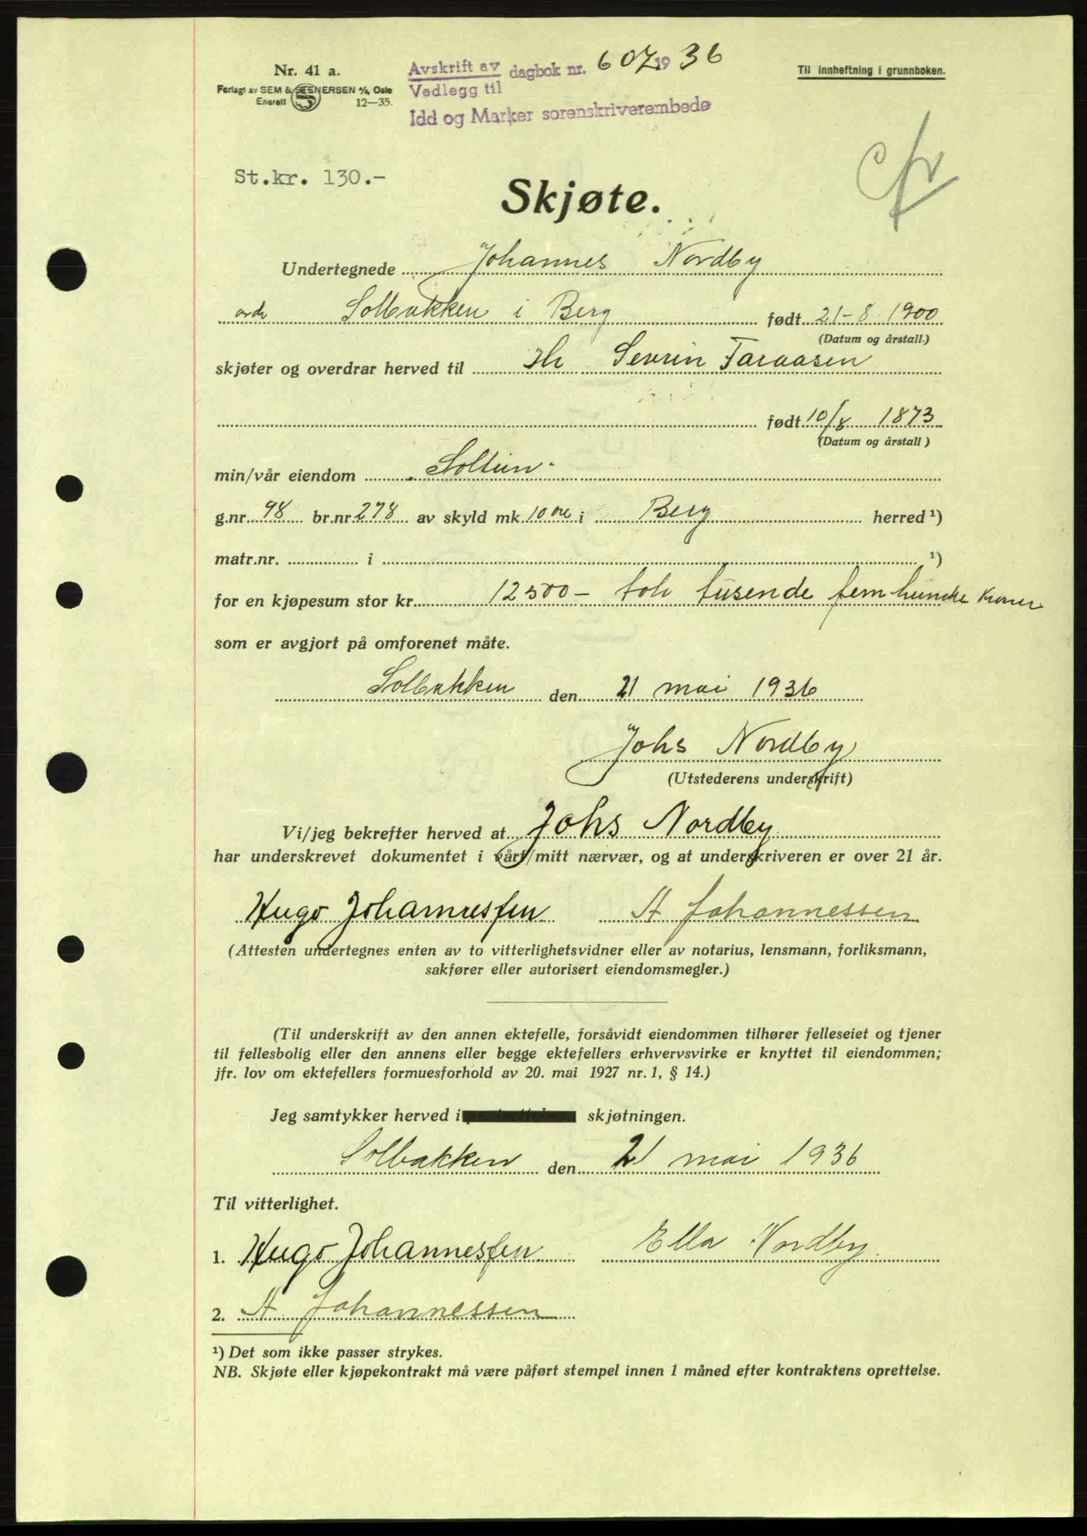 Nr. 41 a.
Forlagt av SEM & STENERSEN A/S, Oslo
Enerett 12—35.
Avskrift av dagbok nr. 607 1936
Vedlegg til
Idd og Marker sorenskriverembede
Til innheftning i grunnboken.
St.kr. 130.-
Skjøte.
Undertegnede Johannes Nordby
Solbakken i Berg født 21-8-1900
(Datum og årstall.)
skjøter og overdrar herved til Hr Sevrin Taraasen
født 10/8 1873
(Datum og årstall)
min/vår eiendom „Soltun"
g.nr. 98 br.nr. 278 av skyld mk. 10 øre i Berg herred ¹)
matr.nr. i ¹)
for en kjøpesum stor kr. 12500- tolv tusende fem hundre kroner
som er avgjort på omforenet måte.
Solbakken den 21 mai 1936
Johs Nordby
(Utstederens underskrift)
Vi/jeg bekrefter herved at Johs Nordby
har underskrevet dokumentet i vårt/mitt nærvær, og at underskriveren er over 21 år.
Hugo Johannessen A Johannessen
(Attesten undertegnes enten av to vitterlighetsvidner eller av notarius, lensmann, forliksmann,
sakfører eller autorisert eiendomsmegler.)
(Til underskrift av den annen ektefelle, forsåvidt eiendommen tilhører felleseiet og tjener
til fellesbolig eller den annens eller begge ektefellers erhvervsvirke er knyttet til eiendommen;
jfr. lov om ektefellers formuesforhold av 20. mai 1927 nr. 1, § 14.)
Jeg samtykker herved i skjøtningen.
Solbakken den 21 mai 1936
Til vitterlighet.
1. Hugo Johannessen Ella Nordby
2. A Johannessen
¹) Det som ikke passer strykes.
NB. Skjøte eller kjøpekontrakt må være påført stempel innen 1 måned efter kontraktens oprettelse.